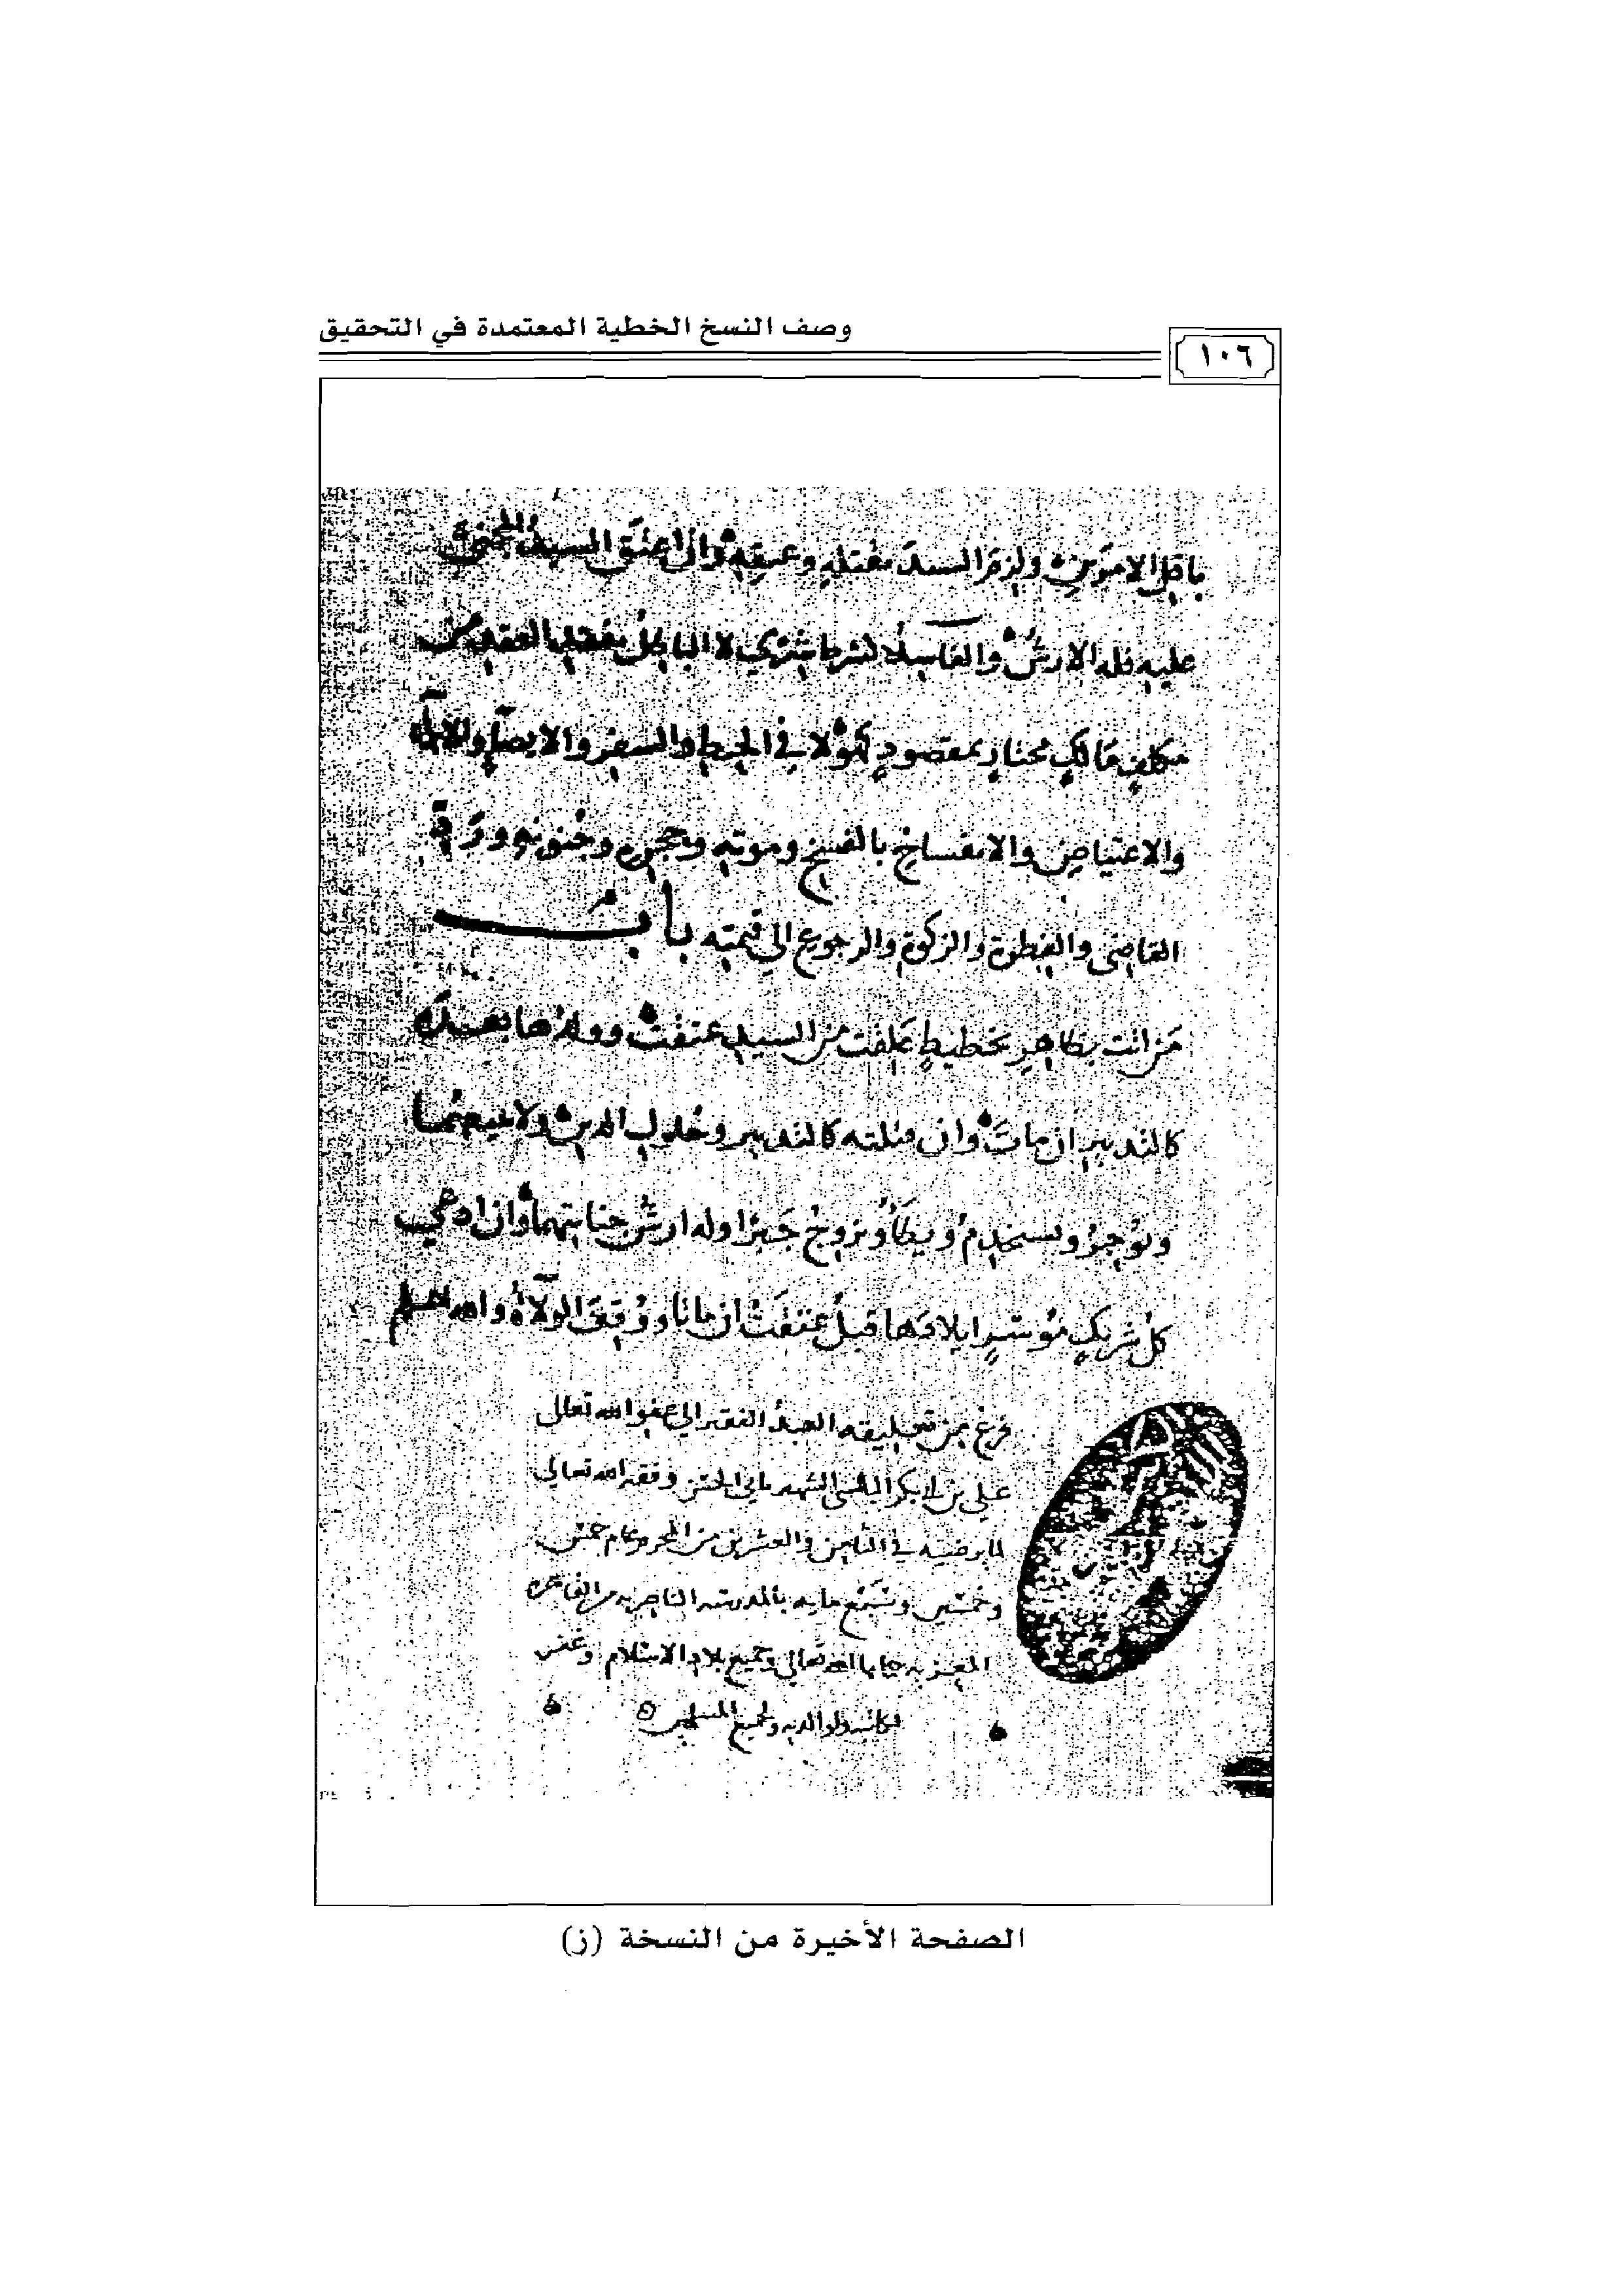 وصف النسخ الخطية المعتمدة في التحقيق
١٠٦
باقل الامرين ولزم السيد بقتله وعتقه وان اعتق السيد المجني
عليه فله الارش والفاسد لا لشرط كشرى لا الباطل بفقد العقد من
مكلف مالك مختار بمقصود كهو لا في الحط والسفر والايصاء والابراء
والاعتياض والانفساخ بالفسخ وموته وحجره وجنونه
القاضي والفطرة والزكوة والرجوع الى قيمته باب
من اتت بظاهر تخطيط علقت من السيد عتقت وولدها بعده
كالتدبير ان مات وان قتلته كالتدبير وحلول الدين ولا نبيعهما
ونوجر ونستخدم ونطأ ونزوج جبرا وله ارش جنايتهما وان ادعى
كل شريك موسر ايلادها قبل عتقت ان ماتا ووقف الولاء والله اعلم
فرغ من تعليقه العبد الفقير الى عفو الله تعالى
علي بن ابي بكر الشهير وفقه الله تعالى
لما يرضيه في الثامن والعشرين من المحرم عام خمس
وخمسين بالمدرسة الناصرية من القاهرة
المعزية حماها الله تعالى وجميع بلاد الاسلام وغفر
لكاتبه ولوالديه ولجميع المسلمين
الصفحة الأخيرة من النسخة (ز)